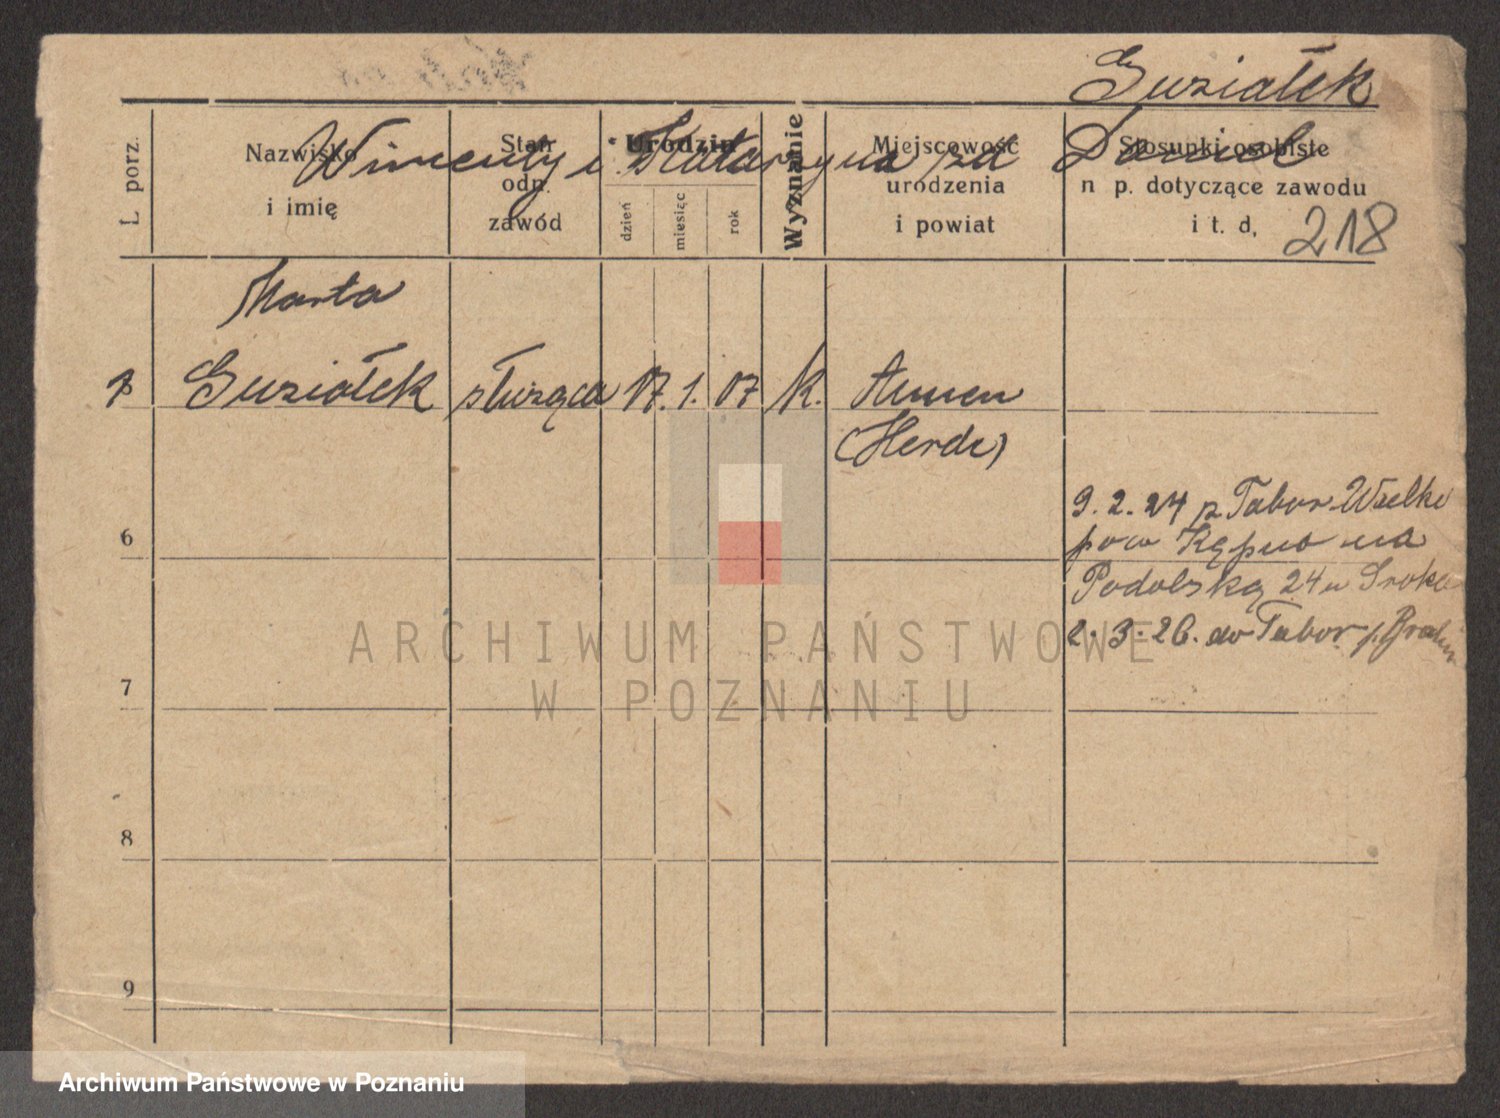 Guziałek
Wincenty i Katarzyna zd Daniel
L. porz.
Nazwisko
i imię
Stan
odn.
zawód
Urodzin
dzień
miesiąc
rok
Wyznanie
Miejscowość
urodzenia
i powiat
Stosunki osobiste
n p. dotyczące zawodu
i t. d.
218
Marta
Guziałek służąca 17. 1. 07 K.
(Herde)
9. 2. 24 z Tabor Wielki
6
pow Kępno na
Podolską 24 u Sroka
2. 3. 26. do Tabor p. Bralin
7
8
9
ARCHIWUM PAŃSTWOWE
W POZNANIU
Archiwum Państwowe w Poznaniu